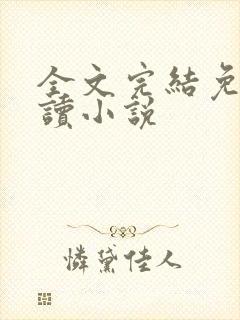 全文完結免
讀小說
憐黛佳人